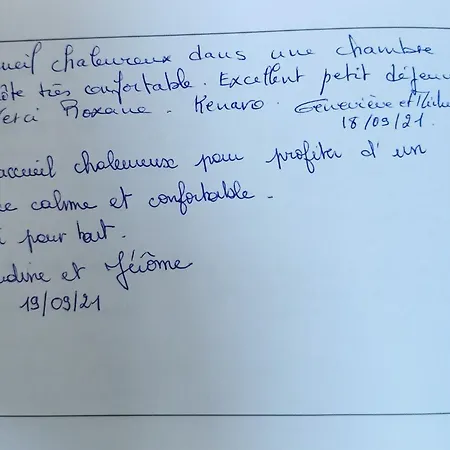 ueil chaleureux dans une chambre
ôte très confortable. Excellent petit déjeun
erci Roxane. Kenavo. Geneviève et
18/09/21.
accueil chaleureux pour profiter d'un
e calme et confortable.
i pour tout.
udine et Jérôme
19/09/21